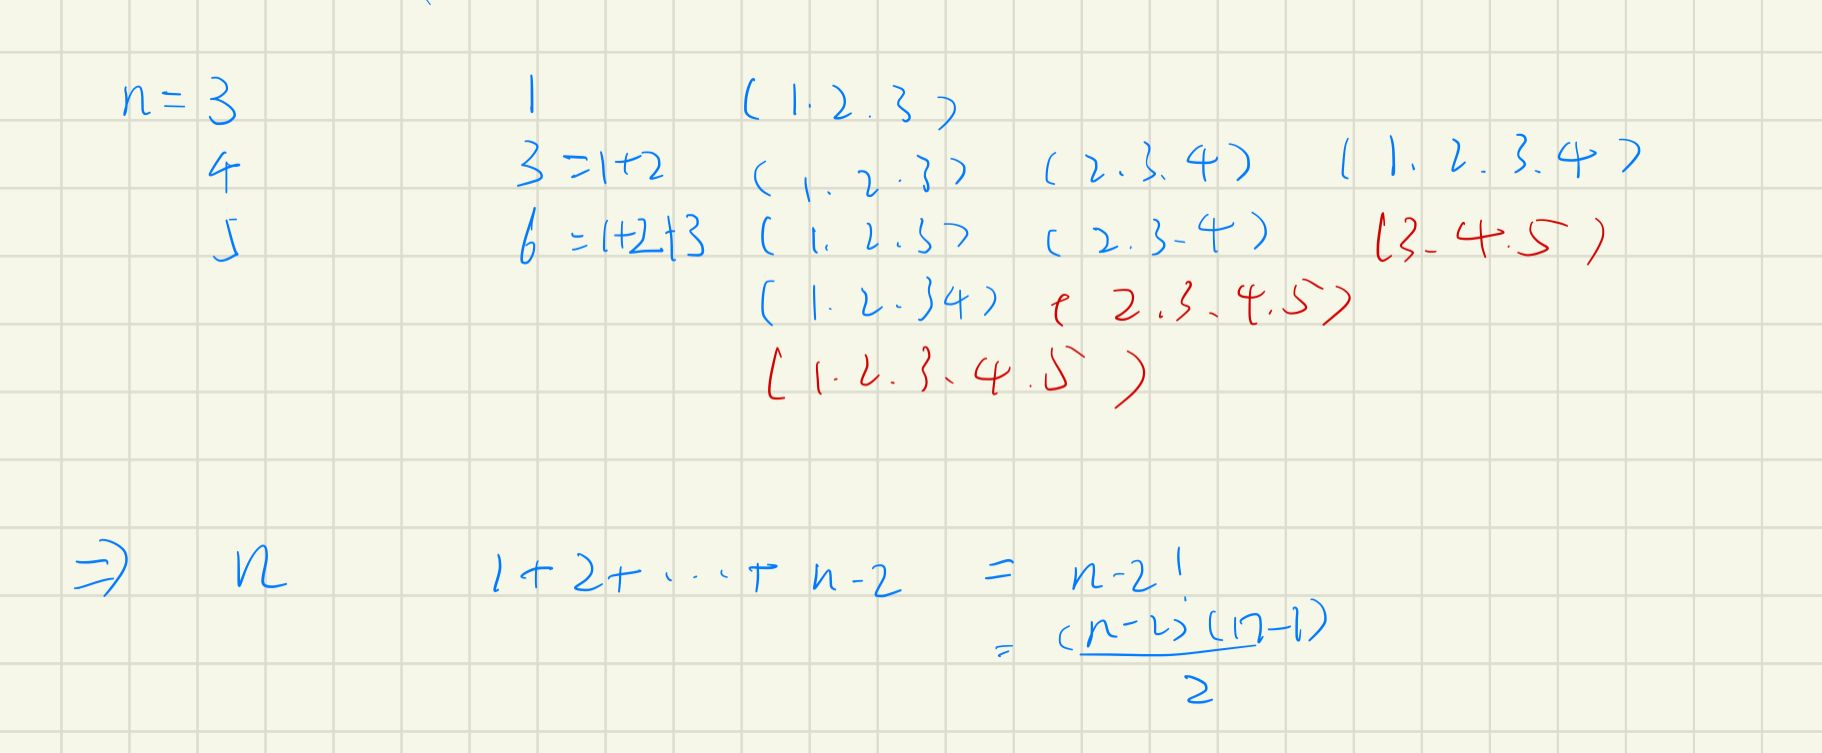 n = 3 1 (1.2.3)
4 3 =1+2 (1.2.3) (2.3.4) (1.2.3.4)
5 6 =1+2+3 (1.2.3) (2.3-4) (3-4.5)
(1.2.34) (2.3.4.5)
(1.2.3.4.5)
⇒ n 1+2+...+ n-2 = n-2!
= (n-2)(n-1)
2